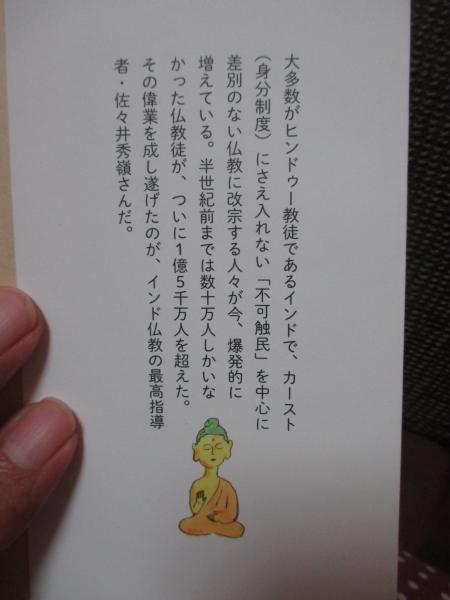 大多数がヒンドゥー教徒であるインドで、カースト
（身分制度）にさえ入れない「不可触民」を中心に
差別のない仏教に改宗する人々が今、爆発的に
増えている。半世紀前までは数十万人しかいな
かった仏教徒が、ついに1億5千万人を超えた。
その偉業を成し遂げたのが、インド仏教の最高指導
者・佐々井秀嶺さんだ。